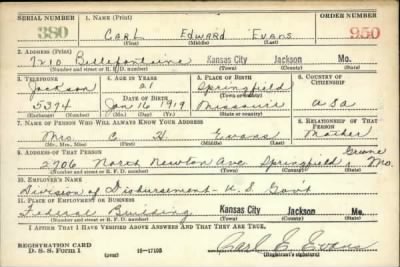 SERIAL NUMBER 1. NAME (Print) ORDER NUMBER
380 CARL Edward Evans 950
(First) (Middle) (Last)
2. ADDRESS (Print)
7210 Bellefontaine Kansas City Jackson Mo.
(Number and street or R. F. D. number) (Town) (County) (State)
3. TELEPHONE 4. AGE IN YEARS 5. PLACE OF BIRTH 6. COUNTRY OF CITIZENSHIP
Jackson 21 Springfield
DATE OF BIRTH (Town or county)
5374 Jan 16 1919 Missouri USA
(Exchange) (Number) (Mo.) (Day) (Yr.) (State or country)
7. NAME OF PERSON WHO WILL ALWAYS KNOW YOUR ADDRESS 8. RELATIONSHIP OF THAT PERSON
Mrs C H Evans Mother
(Mr., Mrs., Miss) (First) (Middle) (Last)
9. ADDRESS OF THAT PERSON Greene
2706 North Newton Ave Springfield Mo.
(Number and street or R. F. D. number) (Town) (County) (State)
10. EMPLOYER'S NAME
Division of Disbursement - U.S. Govt
11. PLACE OF EMPLOYMENT OR BUSINESS
Federal Building Kansas City Jackson Mo.
(Number and street or R. F. D. number) (Town) (County) (State)
I AFFIRM THAT I HAVE VERIFIED ABOVE ANSWERS AND THAT THEY ARE TRUE.
REGISTRATION CARD Carl E. Evans
D. S. S. FORM 1 (over) 16—17105 (Registrant's signature)